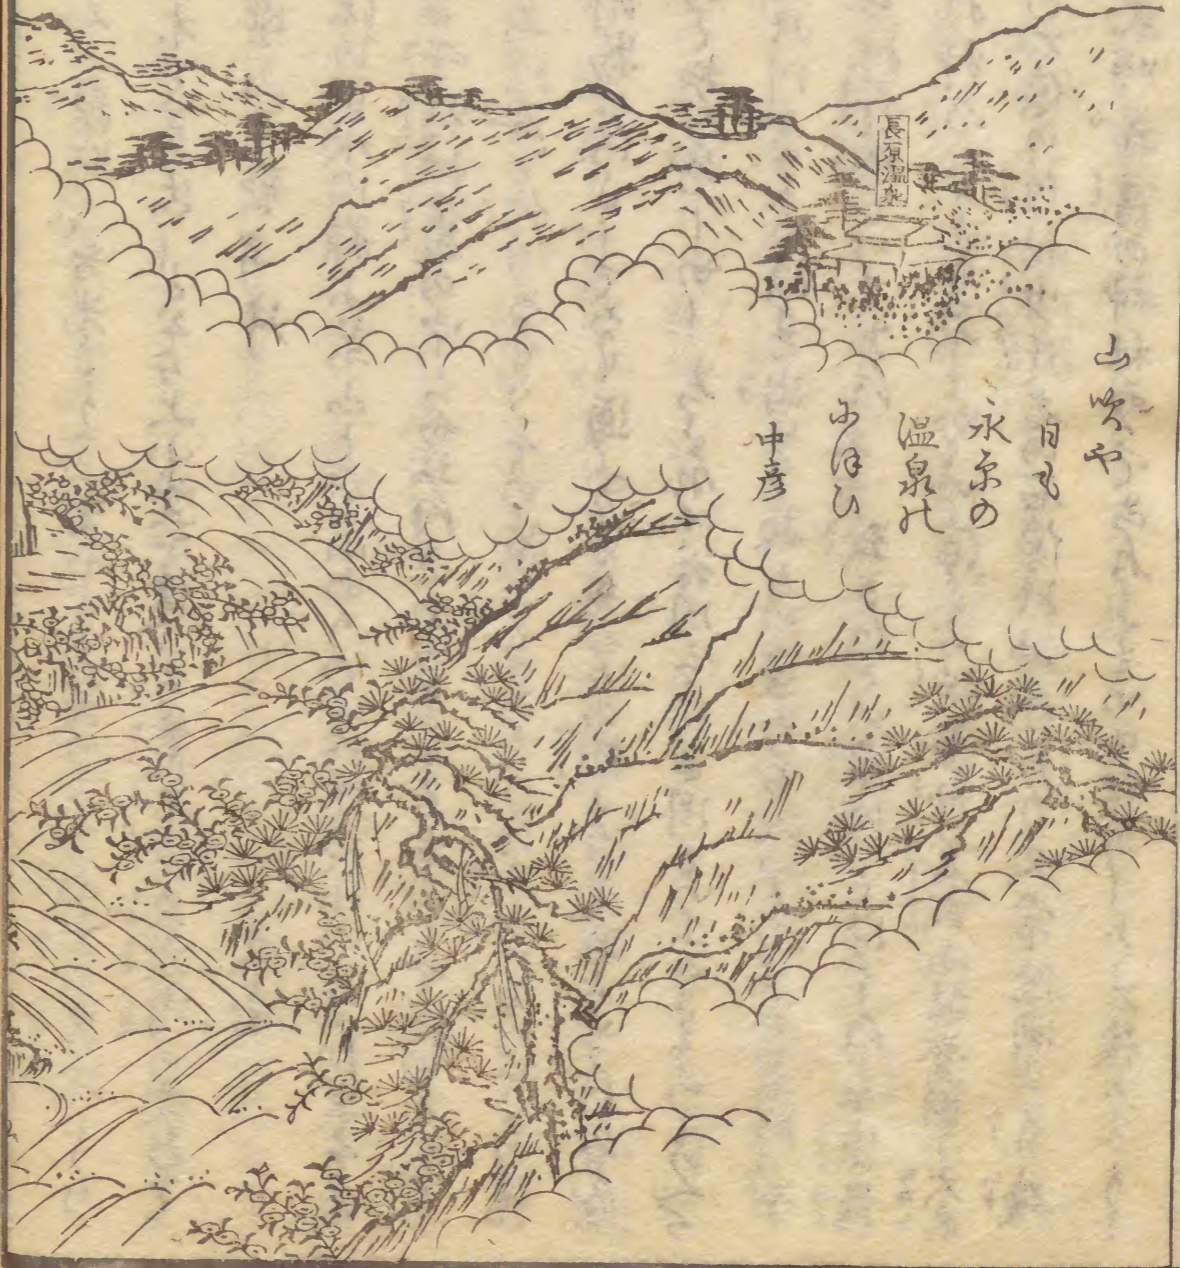 長原温泉
山吹や
日も
永原の
温泉の
にほひ
中彦